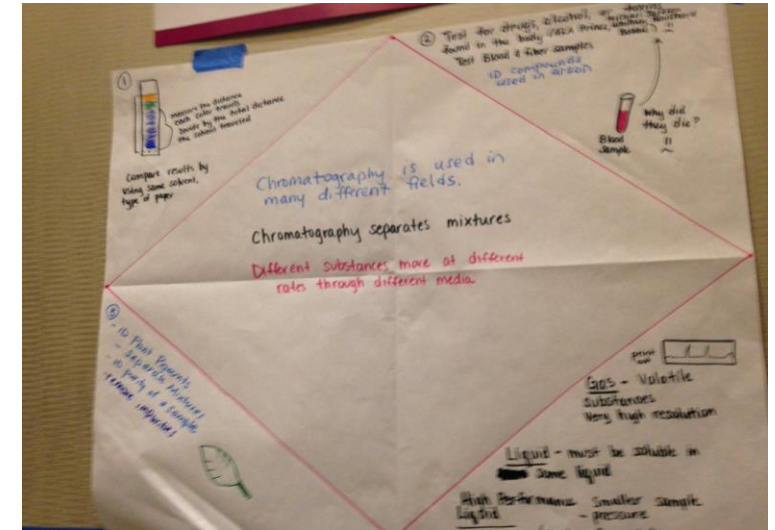 ①
measure the distance
each color travels
divide by the total distance
the solvent traveled
Compare results by
using same solvent,
type of paper
② Test for drugs, alcohol, or toxins
found in the body (AKA Prince,
Test Blood & fiber samples
ID compounds
used in arson
Why did
they die?
Blood
Sample
Chromatography is used in
many different fields.
Chromatography separates mixtures
Different substances move at different
rates through different media
- ID Plant Pigments
- separate mixtures
- ID purity of a sample
- remove impurities
print
out
Gas - Volatile
substances
Very high resolution
Liquid - must be soluble in
some liquid
High Performance Smaller sample
Liquid - pressure